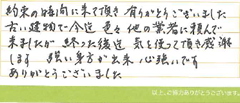 約束の時間に来て頂き 有りがとうございました
古い建物で今迄 色々他の業者に頼んで
来ましたが 終った後迄 気を使って頂き感謝
します 強い身方が出来 心強いです
ありがとうございました
以上、ご協力ありがとうございます。